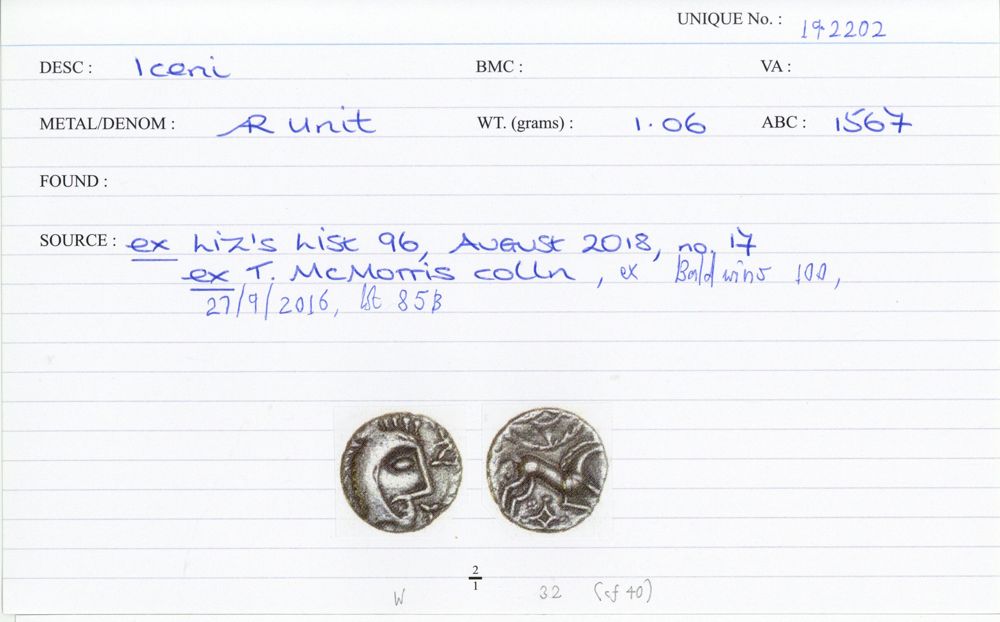 UNIQUE No. : 192202
DESC : Iceni BMC : VA :
METAL/DENOM : AR Unit WT. (grams) : 1.06 ABC : 1567
FOUND :
SOURCE : ex Liz's List 96, August 2018, no. 17
ex T. McMorris colln, ex Baldwins 100,
27/9/2016, lot 85B
2
1
W 32 (cf 40)